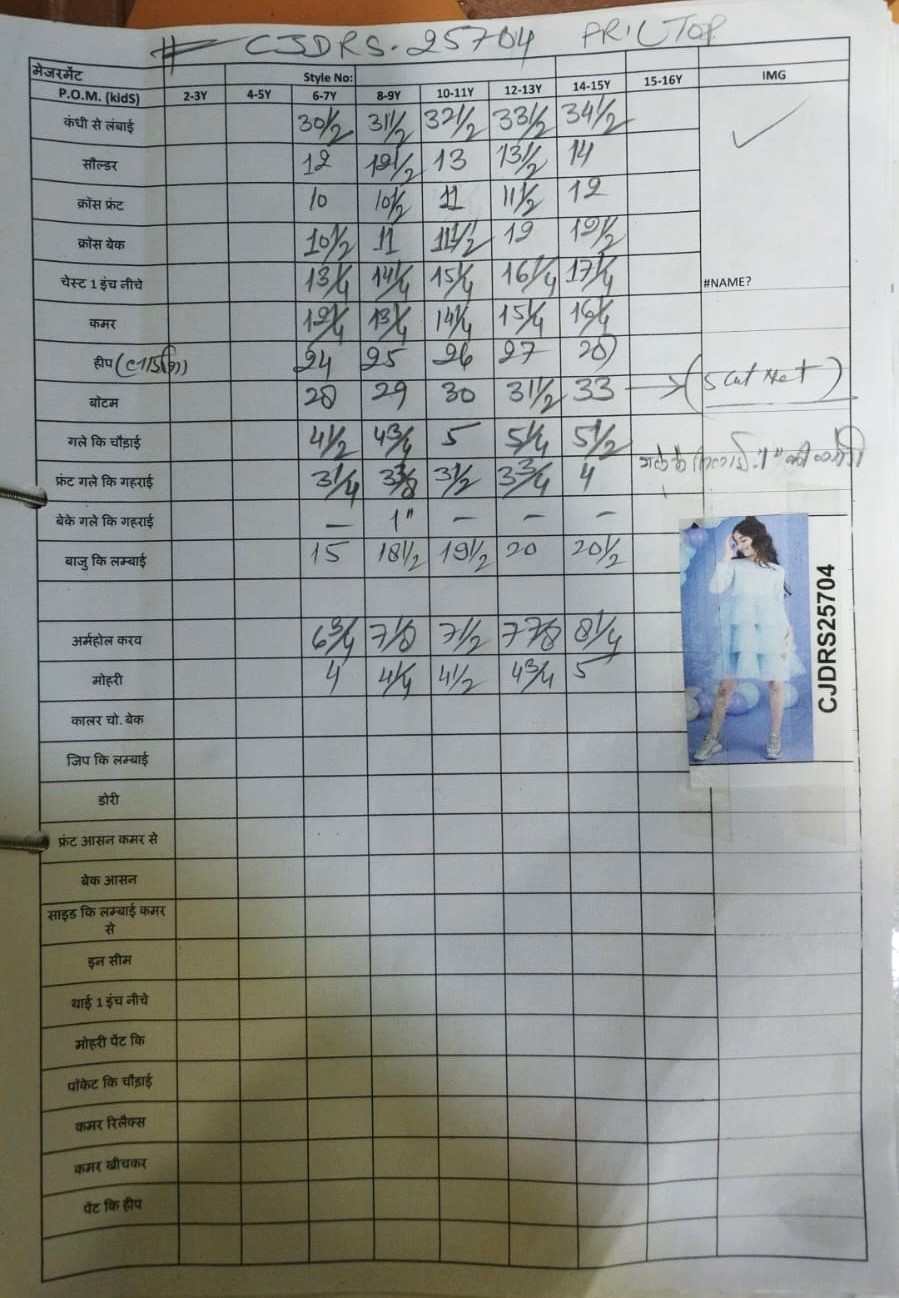 # CJDRS-25704
मेजरमेंट Style No:
P.O.M. (kidS) 2-3Y 4-5Y 6-7Y 8-9Y 10-11Y 12-13Y 14-15Y 15-16Y IMG
कंधी से लंबाई 30 1/2 31 1/2 32 1/2 33 1/2 34 1/2
सौल्डर 12 12 1/2 13 13 1/2 14
क्रॉस फ्रंट 10 10 1/2 11 11 1/2 12
क्रॉस बेक 10 1/2 11 11 1/2 12 12 1/2
चेस्ट 1 इंच नीचे 13 1/4 14 1/4 15 1/4 16 1/4 17 1/4 #NAME?
कमर 12 1/4 13 1/4 14 1/4 15 1/4 16 1/4
हीप 24 25 26 27 28
बोटम 28 29 30 31 1/2 33
गले कि चौड़ाई 4 1/2 4 3/4 5 5 1/4 5 1/2
फ्रंट गले कि गहराई 3 1/4 3 3/8 3 1/2 3 3/4 4
बेके गले कि गहराई – 1" – – –
बाजु कि लम्बाई 15 18 1/2 19 1/2 20 20 1/2
अर्महोल करव 6 3/4 7 1/8 7 1/2 7 7/8 8 1/4
मोहरी 4 4 1/4 4 1/2 4 3/4 5
CJDRS25704
कालर चो. बेक
जिप कि लम्बाई
डोरी
फ्रंट आसन कमर से
बेक आसन
साइड कि लम्बाई कमर
से
इन सीम
थाई 1 इंच नीचे
मोहरी पेंट कि
पॉकेट कि चौड़ाई
कमर रिलैक्स
कमर खीचकर
पेंट कि हीप